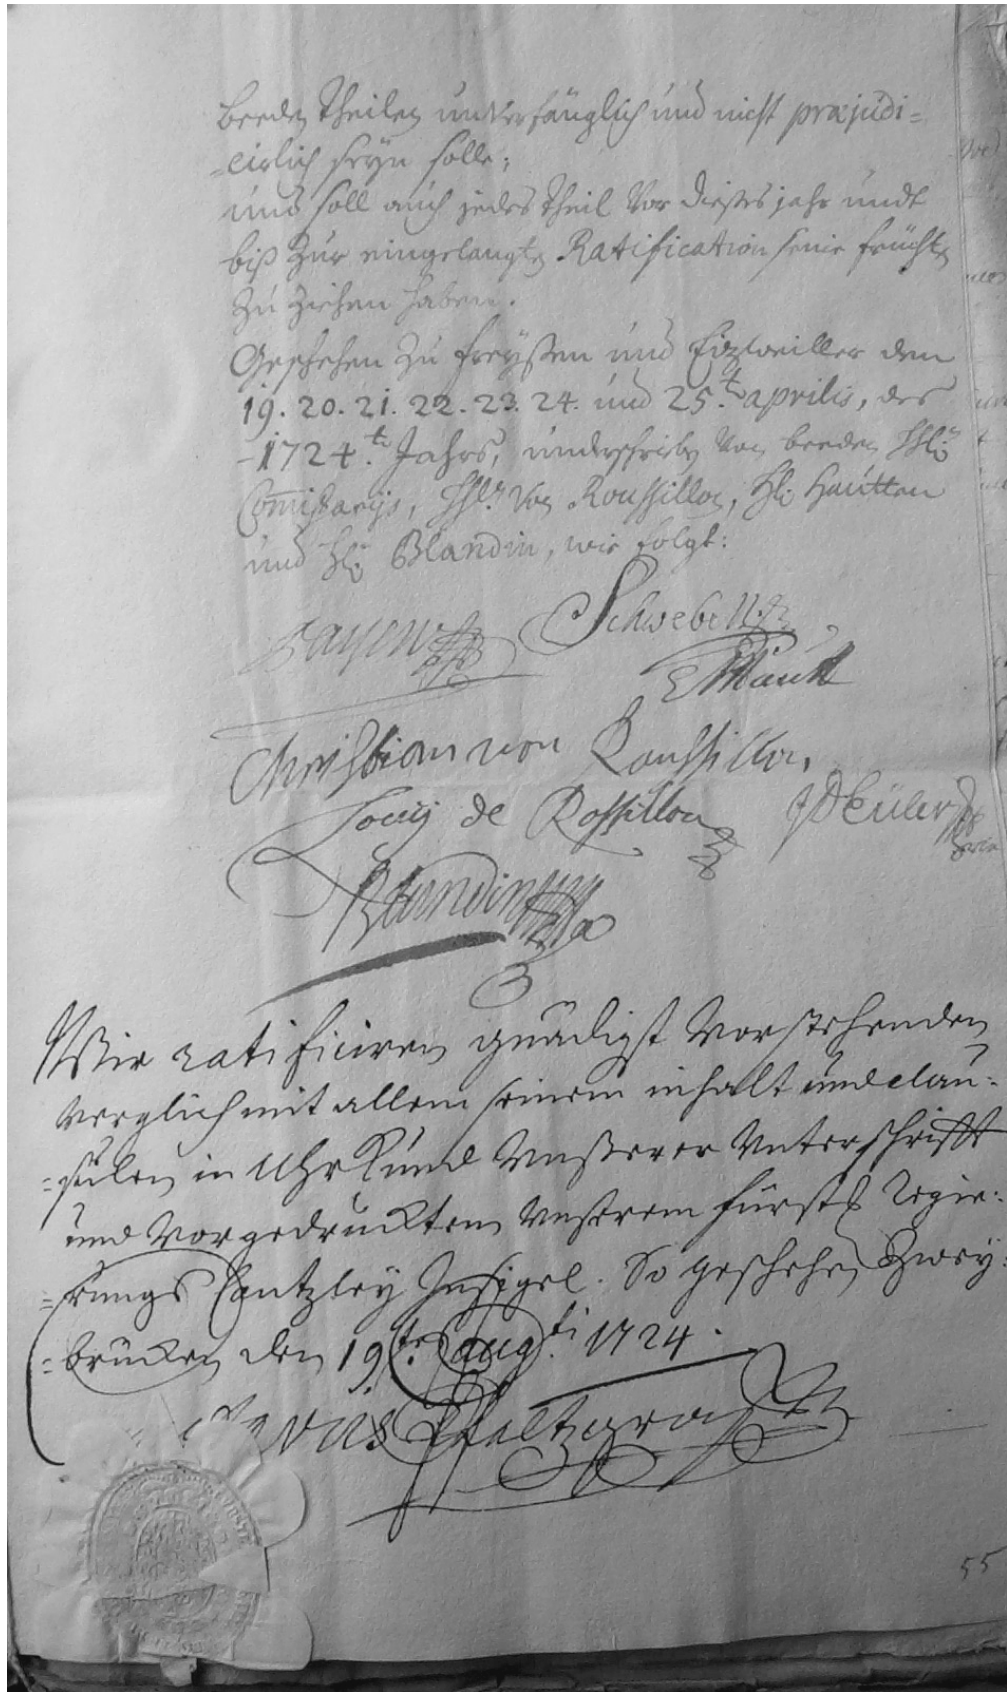 beeden Theilen unverfänglich und nicht præjudi=
=cirlich seyn solle;
und soll auch jedes Theil vor dießes jahr undt
biß zur eingelangten Ratification seine früchten
zu ziehen haben.
Geschehen zu Freyßen und Eitzweiller den
19. 20. 21. 22. 23. 24. und 25.t aprilis, des
-1724.ten Jahrs, underschrieben von beeden HH.
Commissarijs, HH. von Roussillon, H. Hautten
und H. Blandin, wie folgt:
Payen Schwebell
Hautt
Christian von Roussillon,
Louis de Rossillon JD Euler
Blandin
Wir ratificiren gnädigst vorstehenden
verglich mit allem seinem inhalt und clau=
=sulen in Uhrkund Unßerer Unterschrifft
und vorgedrucktem Unßerem fürstl. Regie=
=rungs Cantzley Insigel. So geschehen Zwey=
=brücken den 19.ten aug.ti 1724.
Pfaltzgraff
55